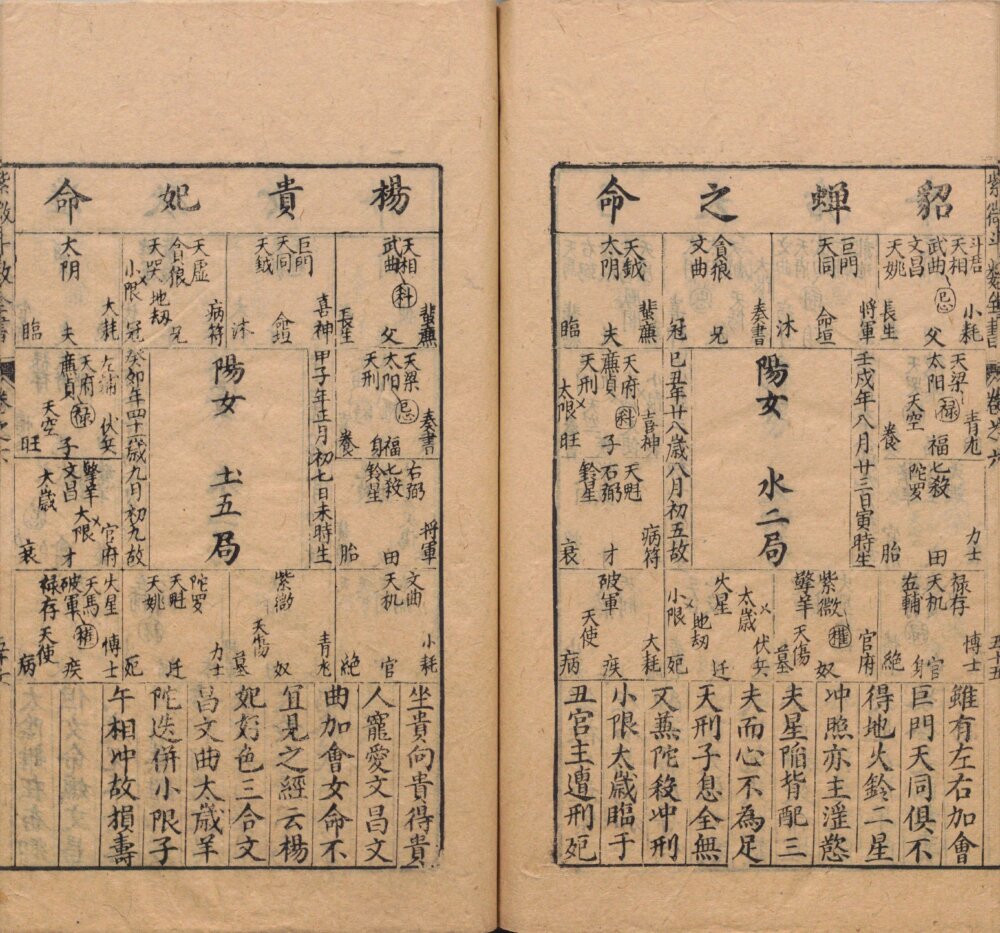 貂蟬之命
斗君
天相
武曲 忌
文昌
天姚
小耗
父
長生
巨門
天同
將軍
命垣
沐
貪狼
文曲
奏書
兄
冠
天鉞
太阴
蜚廉
夫
臨
天梁
太阳 禄
天空
青龙
福
養
壬戌年八月廿三日寅時生
陽女 水二局
己丑年廿八歲八月初五故
天府
廉貞 科
天刑
喜神
子
太限
旺
七殺
陀罗
力士
田
胎
天魁
右弼
鈴星
病符
才
衰
禄存
天机
左輔
博士
官
身
絕
紫微 權
擎羊
天傷
官府
奴
墓
火星
太歲
地劫
伏兵
迁
小限
死
破軍
天使
大耗
疾
病
雖有左右加會
巨門天同俱不
得地火鈴二星
冲照亦主滛慾
夫星陷背配三
夫而心不為足
天刑子息全無
又蕪陀殺冲刑
小限太歲臨于
丑宮主遭刑死
楊貴妃命
天相
武曲 科
蜚廉
父
長生
巨門
天同
天鉞
喜神
命垣
沐
天虛
貪狼
天哭
地劫
病符
兄
小限
冠
太阴
大耗
夫
臨
天梁
太阳 忌
天刑
奏書
福
身
養
甲子年正月初七日未時生
陽女 土五局
癸卯年四十歲九月初九故
左輔
天府
廉貞 禄
天空
伏兵
子
旺
右弼
七殺
鈴星
將軍
田
胎
擎羊
文昌
大歲
大限
官府
才
衰
文曲
天机
小耗
官
絕
紫微
天傷
青龙
奴
墓
陀罗
天魁
天姚
力士
迁
死
火星
天馬
破軍 權
禄存
天使
博士
疾
病
坐貴向貴得貴
人寵愛文昌文
曲加會女命不
宜見之經云楊
妃好色三合文
昌文曲太歲羊
陀迭併小限子
午相冲故損壽